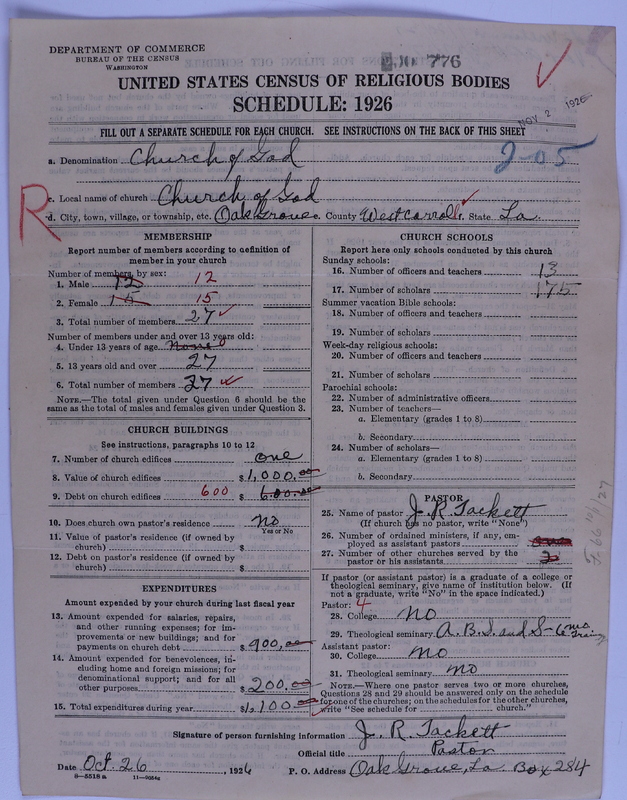 DEPARTMENT OF COMMERCE
BUREAU OF THE CENSUS
WASHINGTON
776
UNITED STATES CENSUS OF RELIGIOUS BODIES
SCHEDULE: 1926
NOV 2 1926
FILL OUT A SEPARATE SCHEDULE FOR EACH CHURCH. SEE INSTRUCTIONS ON THE BACK OF THIS SHEET
a. Denomination Church of God
2-05
R
c. Local name of church Church of God
d. City, town, village, or township, etc. Oak Grove. County West Carroll. State La.
MEMBERSHIP
Report number of members according to definition of
member in your church
Number of members, by sex:
1. Male 12 12
2. Female 15 15
3. Total number of members 27
Number of members under and over 13 years old:
4. Under 13 years of age None 0
5. 13 years old and over 27
6. Total number of members 27
NOTE.—The total given under Question 6 should be
same as the total of males and females given under Question 3.
CHURCH BUILDINGS
See instructions, paragraphs 10 to 12
7. Number of church edifices one
8. Value of church edifices $1,000.00
9. Debt on church edifices 600 $600.00
10. Does church own pastor's residence No
Yes or No
11. Value of pastor's residence (if owned by
church) $
12. Debt on pastor's residence (if owned by
church) $
EXPENDITURES
Amount expended by your church during last fiscal year
13. Amount expended for salaries, repairs,
and other running expenses; for im-
provements or new buildings; and for
payments on church debt $900.00
14. Amount expended for benevolences, in-
cluding home and foreign missions; for
denominational support; and for all
other purposes $200.00
15. Total expenditures during year $1,100.00
CHURCH SCHOOLS
Report here only schools conducted by this church
Sunday schools:
16. Number of officers and teachers 13
17. Number of scholars 175
Summer vacation Bible schools:
18. Number of officers and teachers
19. Number of scholars
Week-day religious schools:
20. Number of officers and teachers
21. Number of scholars
Parochial schools:
22. Number of administrative officers
23. Number of teachers—
a. Elementary (grades 1 to 8)
b. Secondary
24. Number of scholars—
a. Elementary (grades 1 to 8)
b. Secondary
PASTOR
25. Name of pastor J. R. Tackett
(If church has no pastor, write "None")
26. Number of ordained ministers, if any, em-
ployed as assistant pastors
27. Number of other churches served by the
pastor or his assistants
If pastor (or assistant pastor) is a graduate of a college or
theological seminary, give name of institution below. (If
not a graduate, write "No" in the space indicated.)
Pastor: 4
28. College No
29. Theological seminary A. B. S. and S- 6 mo.
Assistant pastor:
30. College No
31. Theological seminary No
NOTE.—Where one pastor serves two or more churches,
Questions 28 and 29 should be answered only on the schedule
for one of the churches; on the schedules for the other churches,
write "See schedule for church."
Signature of person furnishing information J. R. Tackett
Official title Pastor
Date Oct. 26, 1926 P. O. Address Oak Grove, La Box 284
8—5518 a 11—9084a